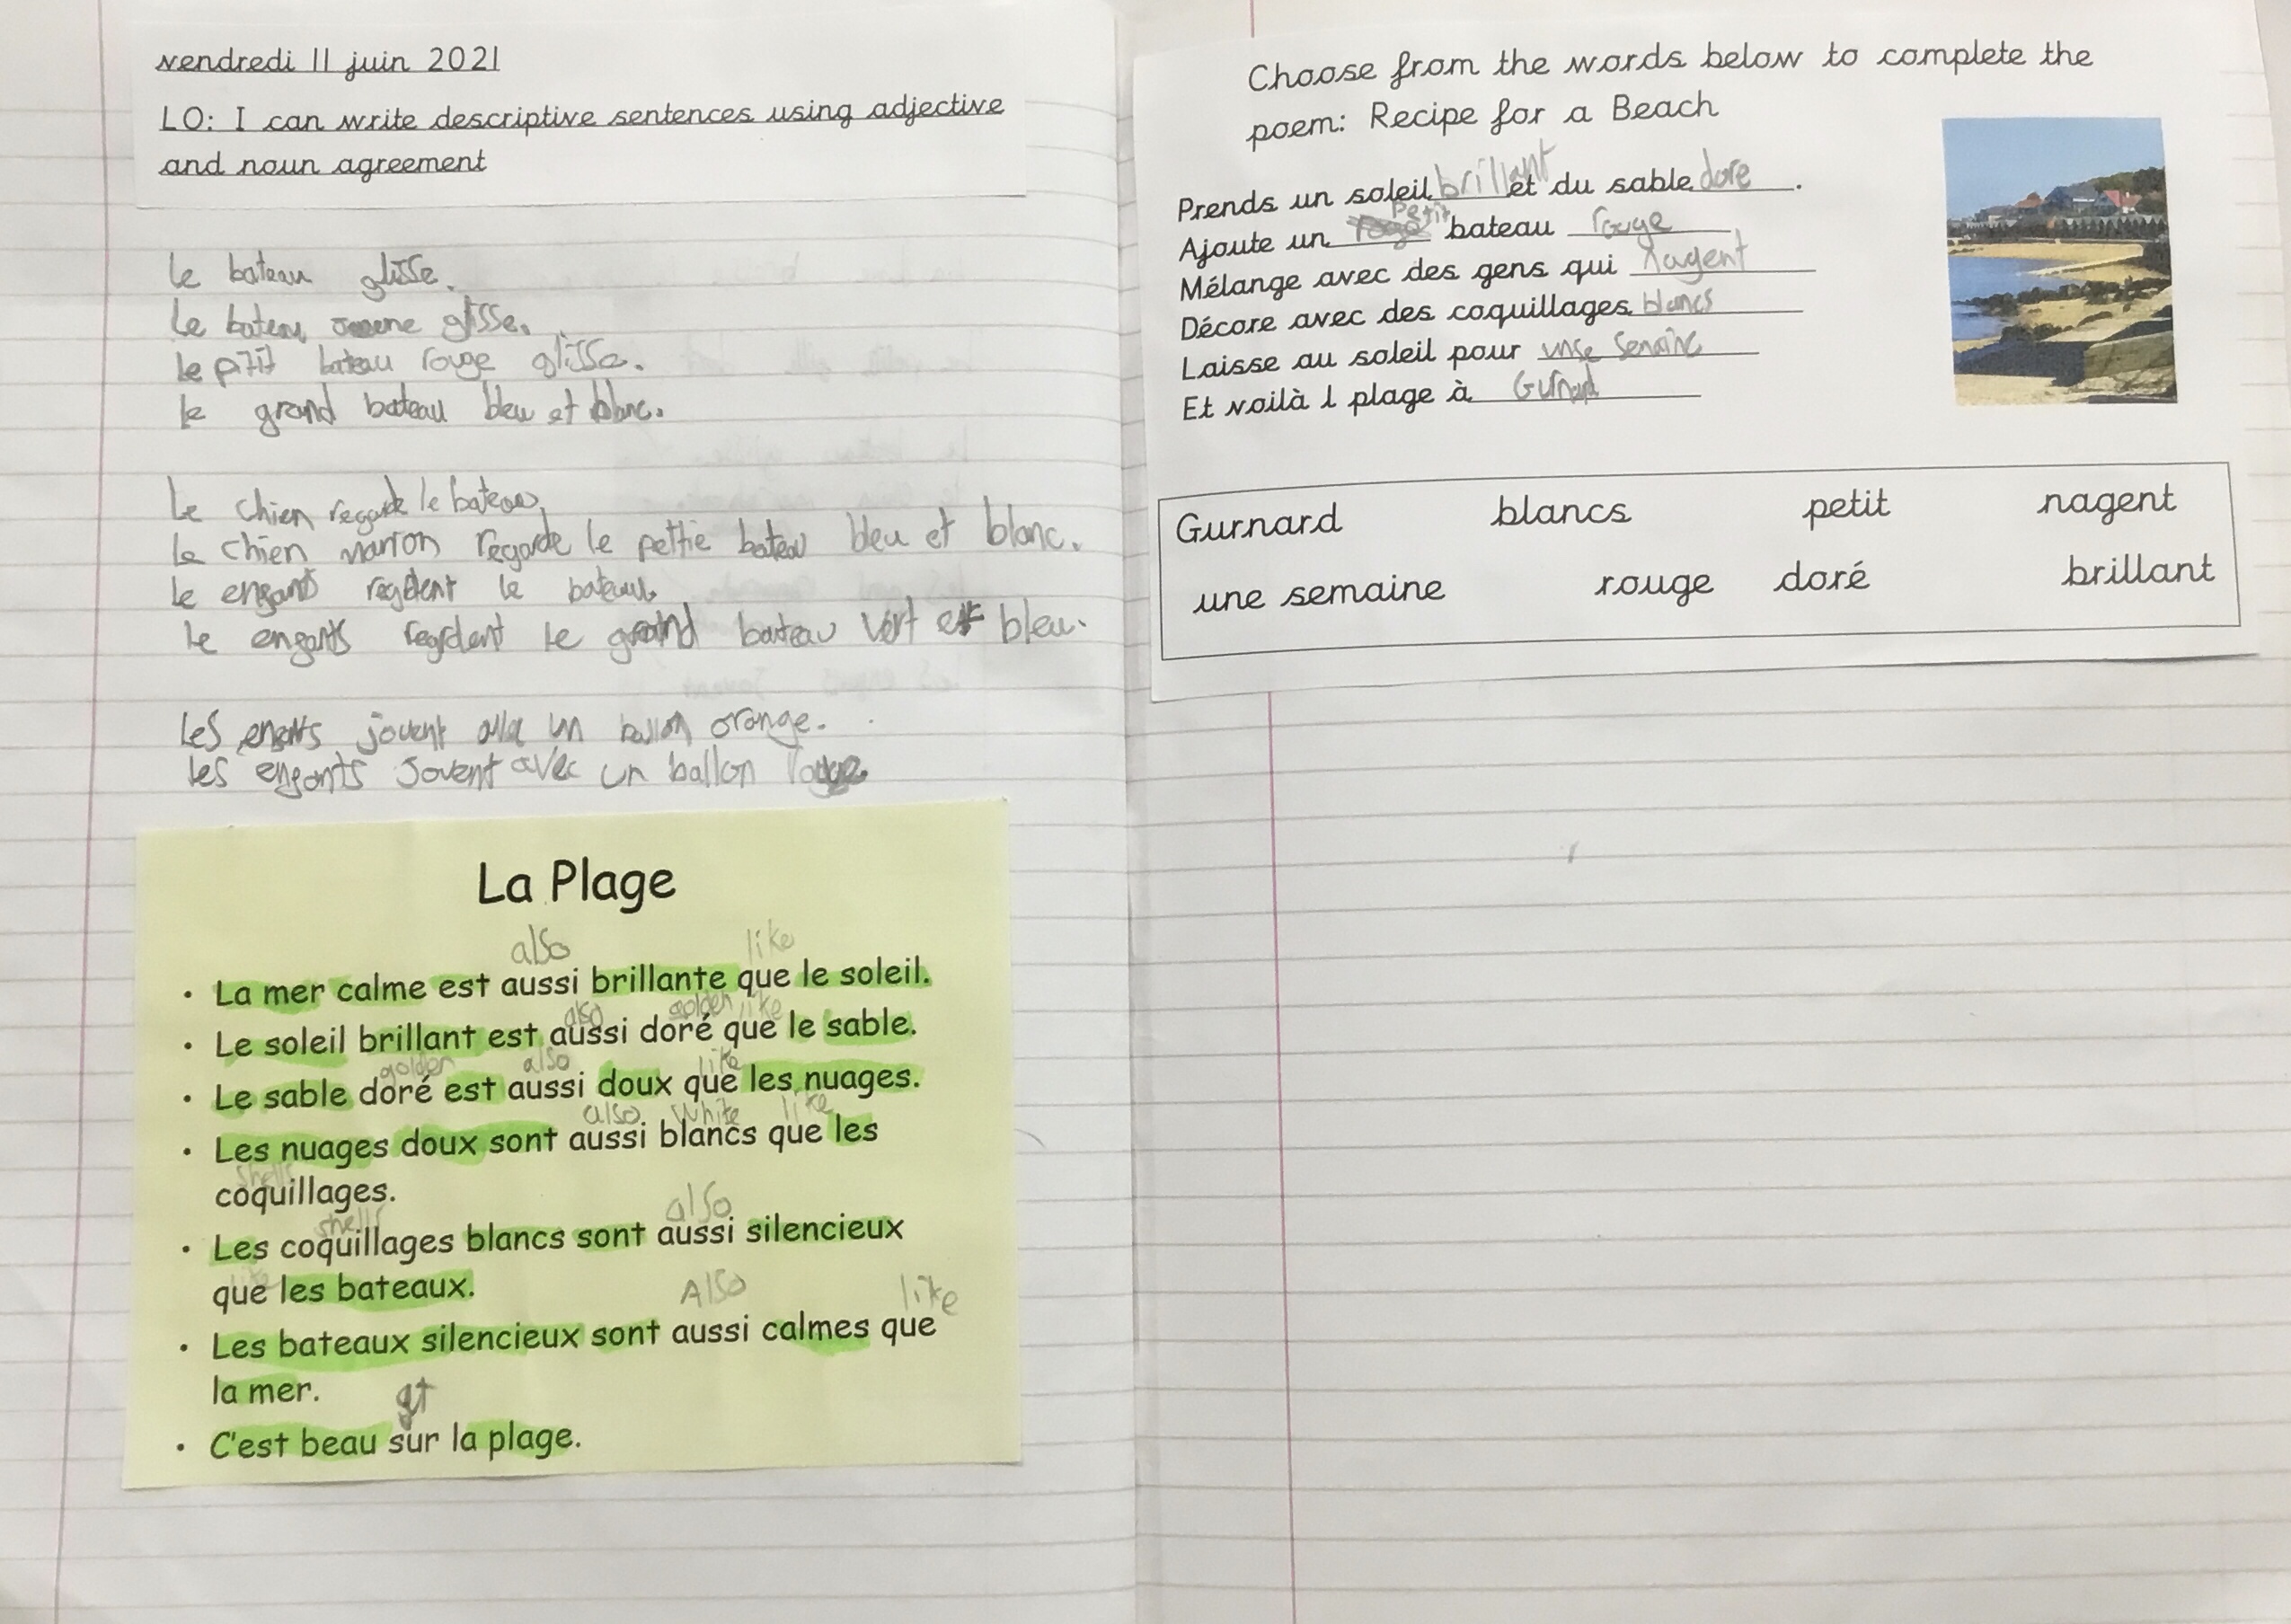 vendredi 11 juin 2021
LO: I can write descriptive sentences using adjective
and noun agreement
Le bateau glisse.
Le bateau glisse.
Le pitit bateau rouge glisse.
le grand bateau bleu et blanc.
Le chien regarde le bateau.
Le chien marron regarde le pettie bateau bleu et blanc.
le enfants regdent le bateau.
Le enfants regrdent le grand bateau vert et bleu.
Les enants jouent un ballon orange.
les enfants jouent avec un ballon rouge
La Plage
also like
• La mer calme est aussi brillante que le soleil.
also golden like
• Le soleil brillant est aussi doré que le sable.
golden also like
• Le sable doré est aussi doux que les nuages.
also white like
• Les nuages doux sont aussi blancs que les
shells
coquillages.
shells also
• Les coquillages blancs sont aussi silencieux
like
que les bateaux.
Also like
• Les bateaux silencieux sont aussi calmes que
la mer.
at
• C'est beau sur la plage.
Choose from the words below to complete the
poem: Recipe for a Beach
Prends un soleil brillant et du sable dore.
Ajoute un Petit bateau rouge
Mélange avec des gens qui nagent
Décore avec des coquillages blancs
Laisse au soleil pour
Et voilà l plage à Gurnard
Gurnard blancs petit nagent
une semaine rouge doré brillant